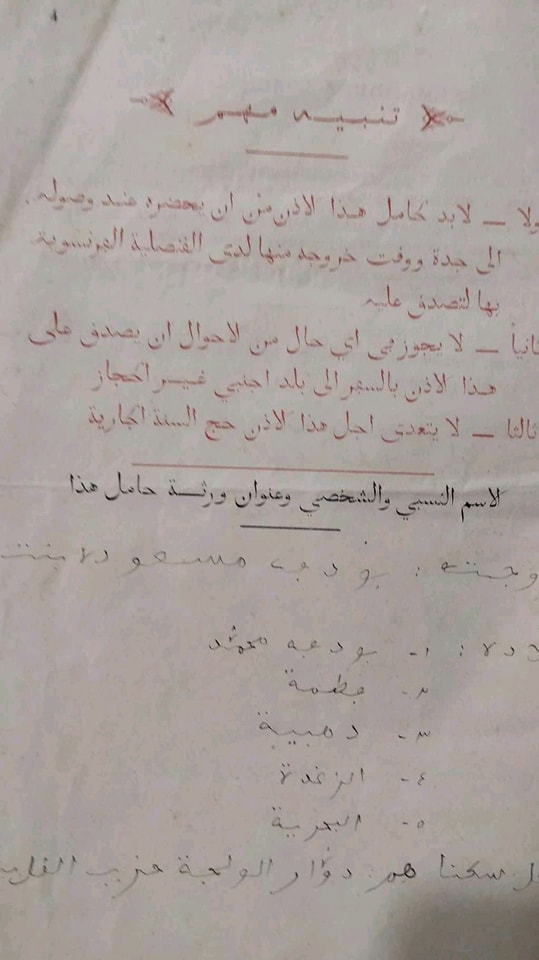 تنبيه مهم
ولا — لابد لحامل هذا الاذن من ان يحضره عند وصوله
الى جدة ووقت خروجه منها لدى القنصلية الفرنسوية
بها لتصدق عليه
انياً — لا يجوز في اي حال من الاحوال ان يصدق على
هذا الاذن بالسفر الى بلد اجنبي غير الحجاز
ثالثا — لا يتعدى اجل هذا الاذن حج السنة الجارية
لاسم النسبي والشخصي وعنوان ورثة حامل هذا
وجته : مسعودة بنت
لادة : ١- محمد
٢- فطمة
٣- ذهبية
٤- الزغدة
٥- البحرية
ل سكنا هم : دوار الولجة حزب